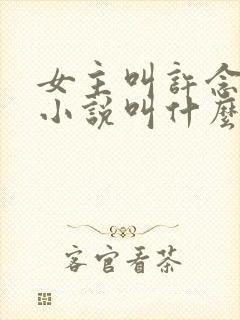 女主叫許念
小說叫什麼
客官看茶